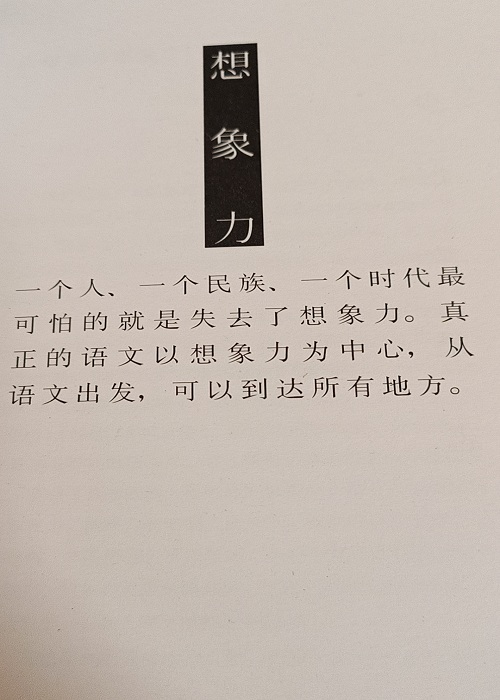 想象力
一个人、一个民族、一个时代最
可怕的就是失去了想象力。真
正的语文以想象力为中心，从
语文出发，可以到达所有地方。